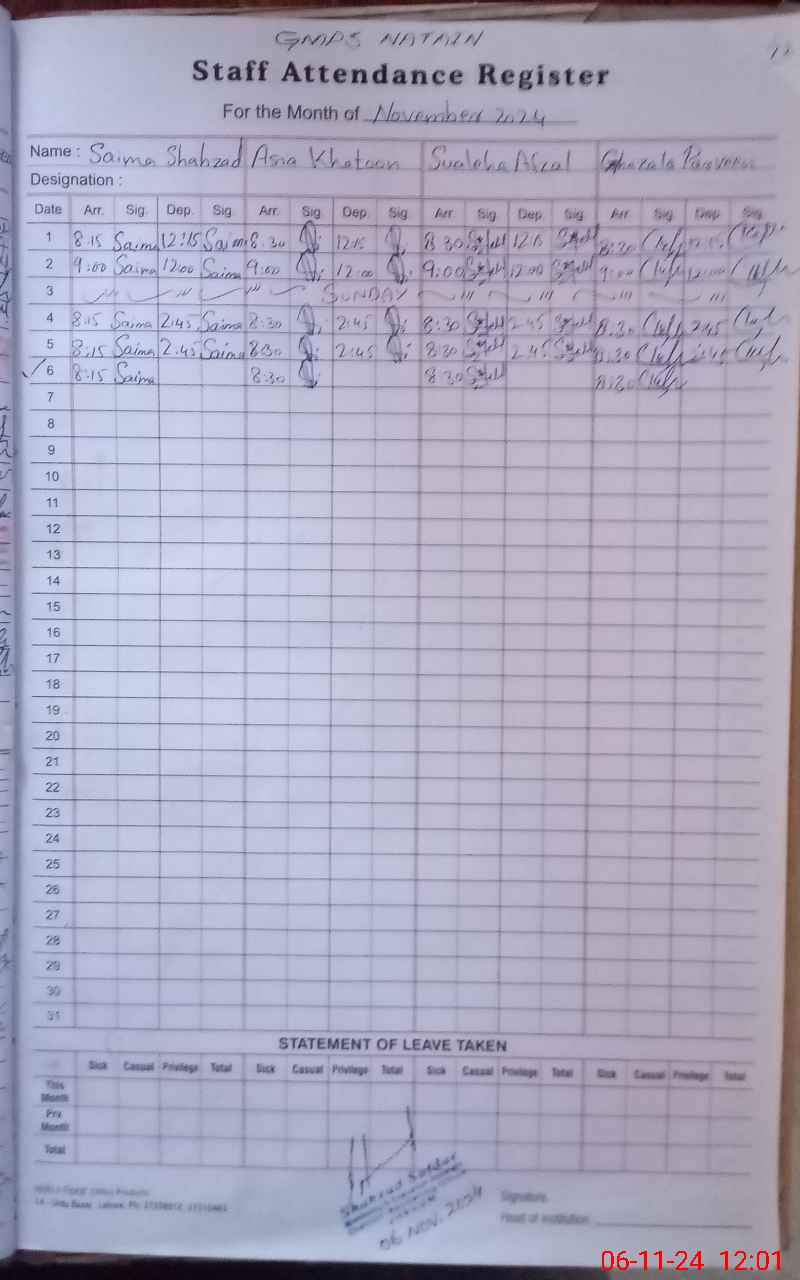 GMPS NATAIN
Staff Attendance Register
For the Month of November 2024
Name : Saima Shahzad Asna Khatoon Afzal Ghazala Parveen
Designation :
Date Arr. Sig. Dep. Sig. Arr. Sig. Dep. Sig. Arr. Sig. Dep. Sig. Arr. Sig. Dep. Sig.
1 8:15 Saima 12:15 Saima 8:30 12:15 8:30 12:15 8:30 12:15
2 9:00 Saima 12:00 Saima 9:00 12:00 9:00 12:00 9:00 12:00
3 SUNDAY
4 8:15 Saima 2:45 Saima 8:30 2:45 8:30 2:45 8:30 2:45
5 8:15 Saima 2:45 Saima 8:30 2:45 8:30 2:45 8:30 2:45
6 8:15 Saima 8:30 8:30 8:30
7
8
9
10
11
12
13
14
15
16
17
18
19
20
21
22
23
24
25
26
27
28
29
30
31
STATEMENT OF LEAVE TAKEN
Sick Casual Privilege Total Sick Casual Privilege Total Sick Casual Privilege Total Sick Casual Privilege Total
This Month
Prv Month
Total
Urdu Bazar, Lahore. Ph:
Shahzad
06 NOV 2024
Signature
Head of Institution
06-11-24 12:01